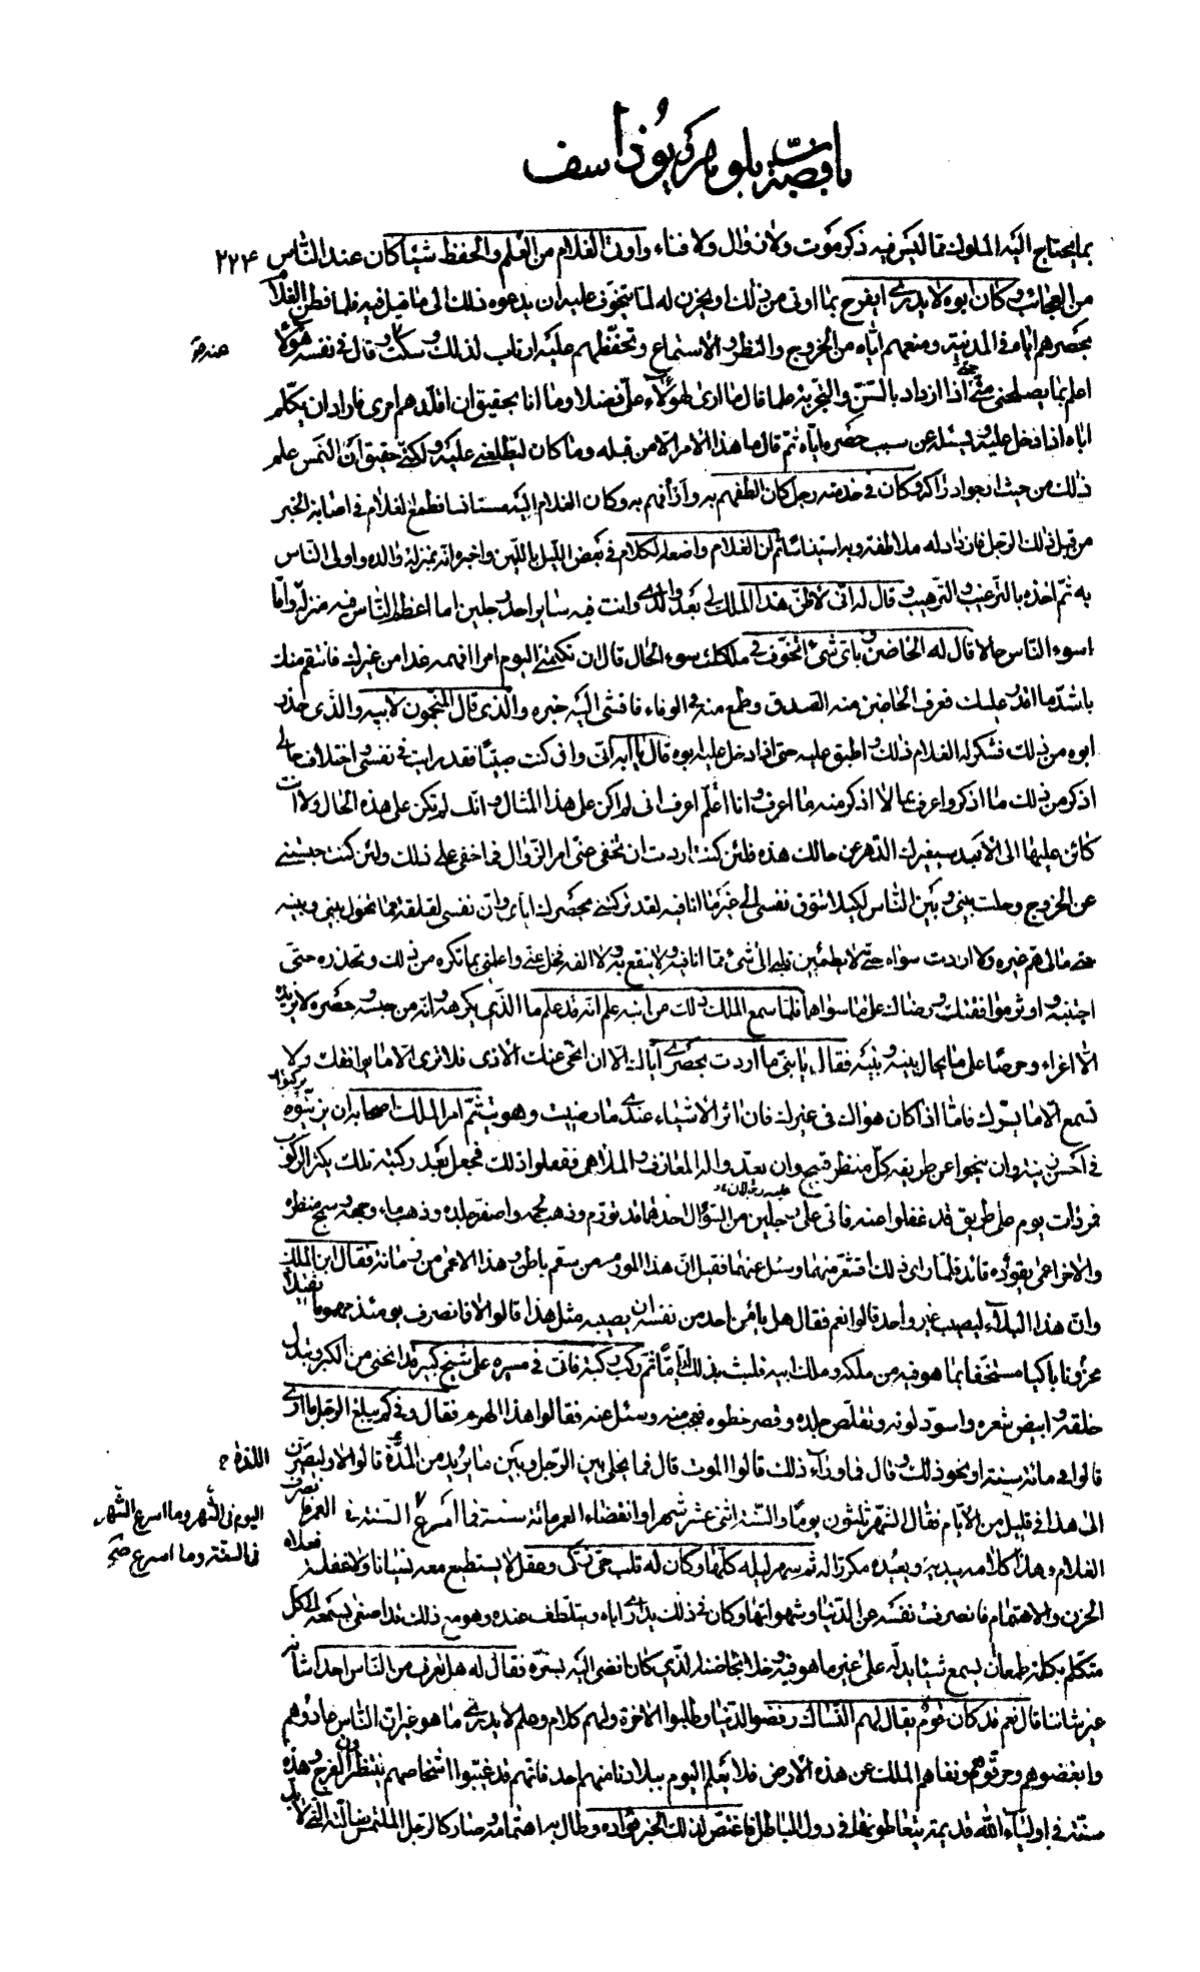 باب قصة بلوهر و يوذاسف
بما يحتاج اليه الملوك مما ليس فيه ذكر موت ولا زوال ولا فناء واوتى الغلام من العلم والحفظ شيئا كان عند الناس ٢٢۴
من العجائب وكان ابوه لا يدرى ايفرح بما اوتى من ذلك او يحزن له لما يتخوف عليه ان يدعوه ذلك الى ما قيل فيه فلما فطن الغلام
بحصرهم اياه فى المدينة ومنعهم اياه من الخروج والنظر والاستماع وتحفظهم عليه ارتاب لذلك وسكت وقال فى نفسه هؤلاء
اعلم بما يصلحنى منى حتى اذا ازداد بالسن والتجربة علما قال ما ارى لهؤلاء على فضلا وما انا بحقيق ان اقلدهم امرى فاراد ان يكلم
اباه اذا دخل عليه ويسئله عن سبب حصره اياه ثم قال ما هذا الامر الا من قبله وما كان ليطلعنى عليه ولكنى حقيق ان التمس علم
ذلك من حيث ارجو ادراكه وكان فى خدمته رجل كان الطفهم به وارأفهم به وكان الغلام اليه مستانسا فطمع الغلام فى اصابة الخبر
من قبل ذلك الرجل فازداد له ملاطفة وبه استيناسا ثم ان الغلام واضعه الكلام فى بعض الليل باللين واخبره انه بمنزلة والده واولى الناس
به ثم اخذه بالترغيب والترهيب وقال له انى لاظن هذا الملك لى بعد والدى وانت فيه سائر احد رجلين اما اعظم الناس فيه منزلة واما
اسوء الناس حالا قال له الحاضن وباى شىء اتخوف فى ملكك سوء الحال قال ان تكتمنى اليوم امرا افهمه غدا من غيرك فانتقم منك
باشد ما اقدر عليك فعرف الحاضن منه الصدق وطمع منه فى الوفاء فافشى اليه خبره والذى قال المنجمون لابيه والذى حذر
ابوه من ذلك فشكر له الغلام ذلك واطبق عليه حتى اذا دخل عليه ابوه قال يا ابه انى وان كنت صبيا فقد رايت فى نفسى واختلاف حالى
اذكر من ذلك ما اذكر واعرف بما لا اذكر منه ما اعرف وانا اعلم اعرف انى لم اكن على هذا المثال وانك لم تكن على هذه الحال ولا انت
كائن عليها الى الابد سيغيرك الدهر عن حالك هذه فلئن كنت اردت ان تخفى عنى امر الزوال فما خفى على ذلك ولئن كنت حبستنى
عن الخروج وحلت بينى وبين الناس لكيلا تتوق نفسى الى غير ما انا فيه لقد تركتنى بحصرك اياى وان نفسى لقلقة مما تحول بينى وبينه
حتى مالى هم غيره ولا اردت سواه حتى لا يطمئن قلبى الى شىء مما انا فيه ولا انتفع به ولا الفه فخل عنى واعلمنى بما تكره من ذلك وتحذره حتى
اجتنبه واوثر موافقتك ورضاك على ما سواهما فلما سمع الملك ذلك من ابنه علم انه قد علم ما الذى يكرهه وانه من حبسه وحصره لا يزيده
الا اغراء وحرصا على ما يحال بينه وبينه فقال يا بنى ما اردت بحصرى اياك الا ان انحى عنك الاذى فلا ترى الا ما يوافقك ولا
تسمع الا ما يسرك فاما اذا كان هواك فى غير ذلك فان اثر الاشياء عندى ما رضيت وهويت ثم امر الملك اصحابه ان يركبوه
فى احسن زينة وان ينحوا عن طريقه كل منظر قبيح وان يعدوا له المعازف والملاهى ففعلوا ذلك فجعل بعد ركبته تلك يكثر الركوب
فمر ذات يوم على طريق قد غفلوا عنه فاتى على رجلين من السؤال احدهما قد تورم وذهب لحمه واصفر جلده وذهب ماء وجهه وسمج منظره
والاخر اعمى يقوده قائد فلما راى ذلك اقشعر منهما وسئل عنهما فقيل ان هذا المورم من سقم باطن وهذا الاعمى من زمانة فقال ابن الملك
وان هذا البلاء ليصيب غير واحد قالوا نعم فقال هل يأمن احد من نفسه ان يصيبه مثل هذا قالوا لا فانصرف يومئذ مهموما ثقيلا
محزونا باكيا مستخفا بما هو فيه من ملكه وملك ابيه فلبث بذلك اياما ثم ركب ركبة فاتى فى مسيره على شيخ كبير قد انحنى من الكبر وتبدل
خلقه وابيض شعره واسود لونه وتقلص جلده وقصر خطوه فعجب منه وسئل عنه فقالوا هذا الهرم فقال وفى كم يبلغ الرجل ما ارى
قالوا فى مائة سنة او نحو ذلك وقال فما وراء ذلك قالوا الموت قال فما يخلى بين الرجل وبين ما يريد من المدة قالوا لا وليصيرن
الى هذا فى قليل من الايام فقال الشهر ثلثون يوما والسنة اثنى عشر شهرا وانقضاء العمر مائة سنة فما اسرع السنة فى العمر
الغلام وهذا كلامه يبديه ويعيده مكررا له ثم سهر ليله كلها وكان له قلب حى ذكى وعقل لا يستطيع معه نسيانا ولا غفلة فعلاه
الحزن والاهتمام فانصرفت نفسه عن الدنيا وشهواتها وكان فى ذلك يدارى اباه ويتلطف عنده وهو مع ذلك قد اصغى بسمعه الى كل
متكلم بكلمة طمعا ان يسمع شيئا يدله على غير ما هو فيه وخلا بحاضنه الذى كان افضى اليه بسره فقال له هل تعرف من الناس احدا شانه
غير شاننا قال نعم قد كان قوم يقال لهم النساك رفضوا الدنيا وطلبوا الاخرة ولهم كلام وعلم لا يدرى ما هو غير ان الناس عادوهم
وابغضوهم وحرقوهم ونفاهم الملك عن هذه الارض فلا يعلم اليوم ببلادنا منهم احد فانهم قد غيبوا اشخاصهم ينتظرون الفرج وهذه
سنة فى اولياء الله قديمة يتعاطونها فى دول الباطل فاغتص لذلك الخبر فؤاده وطال به اهتمامه وصار كالرجل الملتمس ضالته التى لا بد
اللذة
اليوم فى الشهر وما اسرع الشهر
فى السنة وما اسرع